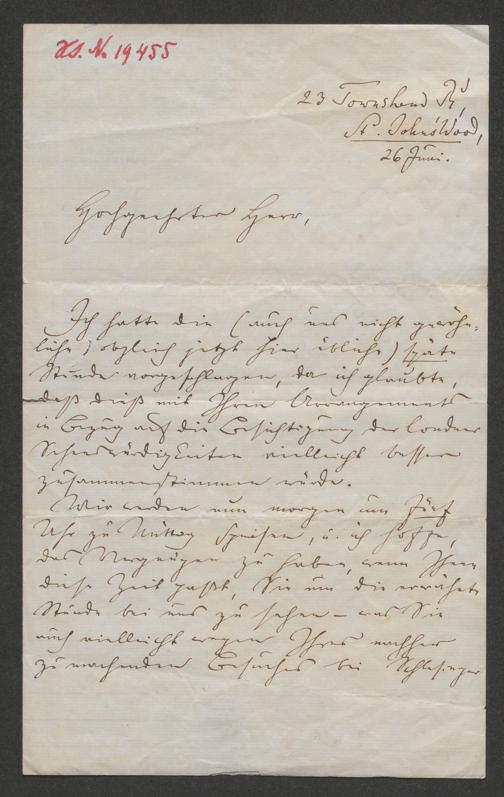 HS. N. 19455
23 Townshend Rd,
St. John's Wood,
26 Juni.
Hochgeehrter Herr,
Ich hatte die (auch uns nicht gewöhn-
liche, obgleich jetzt hier übliche) späte
Stunde vorgeschlagen, da ich glaubte,
daß dieß mit Ihren Arrangements
in Bezug auf die Besichtigung der Londoner
Sehenswürdigkeiten vielleicht besser
zusammenstimmen würde.
Wir werden nun morgen um Fünf
Uhr zu Mittag speisen, u. ich hoffe,
das Vergnügen zu haben, wenn Ihnen
diese Zeit paßt, Sie um die erwähnte
Stunde bei uns zu sehen – was Sie
auch vielleicht wegen Ihres nachher
zu machenden Besuches bei Schlesinger